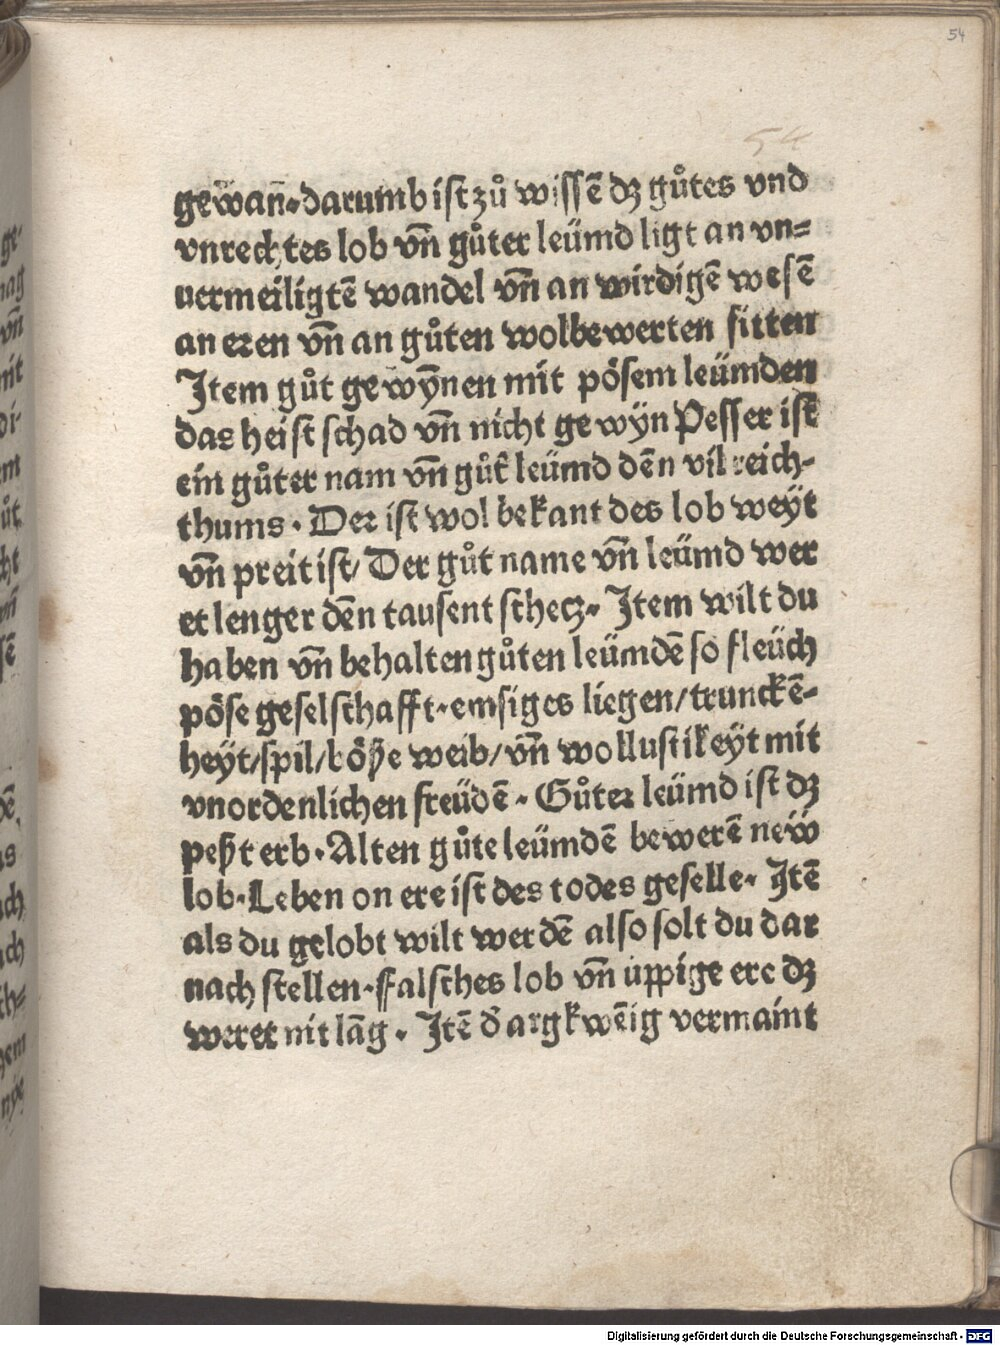 54
54
gewan̄·darumb iſt zů wiſſē dz gůtes vnd
vnrechtes lob vn̄ gůter leümd ligt an vn=
uermeiligtē wandel vn̄ an wirdigē weſē
an eren vn̄ an gůten wolbewerten ſitten
Jtem gůt gewȳnen mit pöſem leümden
das heiſt ſchad vn̄ nicht gewÿn Peſſer iſt
ein gůter nam vn̄ gůt̄ leümd dēn vil reich-
thums · Der iſt wol bekant des lob weÿt
vn̄ preit iſt/ Der gůt name vn̄ leümd wer
et lenger dēn tauſent ſchecz· Jtem wilt du
haben vn̄ behalten gůten leümdē ſo fleüch
pöſe geſelſchafft·emſiges liegen/trunckē-
heÿt/ſpil/böße weib/vn̄ wolluſtikeÿt mit
vnordenlichen freüdē · Gůter leümd iſt dz
peßt erb·Alten gůte leümdē bewerē neẅ
lob·Leben on ere iſt des todes geſelle· Jtē
als du gelobt wilt werdē alſo ſolt du dar
nach ſtellen·ffalſches lob vn̄ üppige ere dz
weret nit lāg · Jtē d̄ argkwēig vermaint
ge-
mag
vn̄
mit
di-
em
ůt
cht
ſē
dē
as
ach
ach
th=
gem
Digitalisierung gefördert durch die Deutsche Forschungsgemeinschaft - DFG